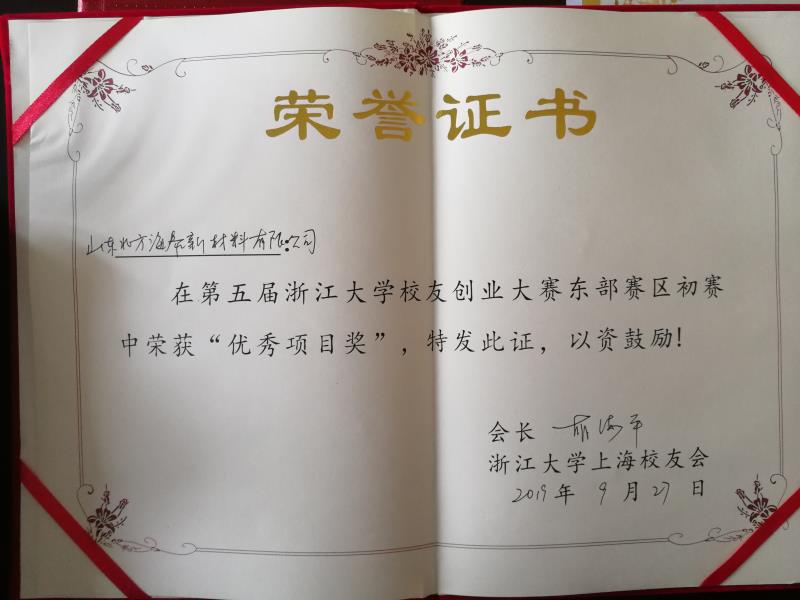 荣誉证书
山东北方海泰新材料有限公司
在第五届浙江大学校友创业大赛东部赛区初赛
中荣获“优秀项目奖”，特发此证，以资鼓励！
会长
浙江大学上海校友会
2019年 9月27日